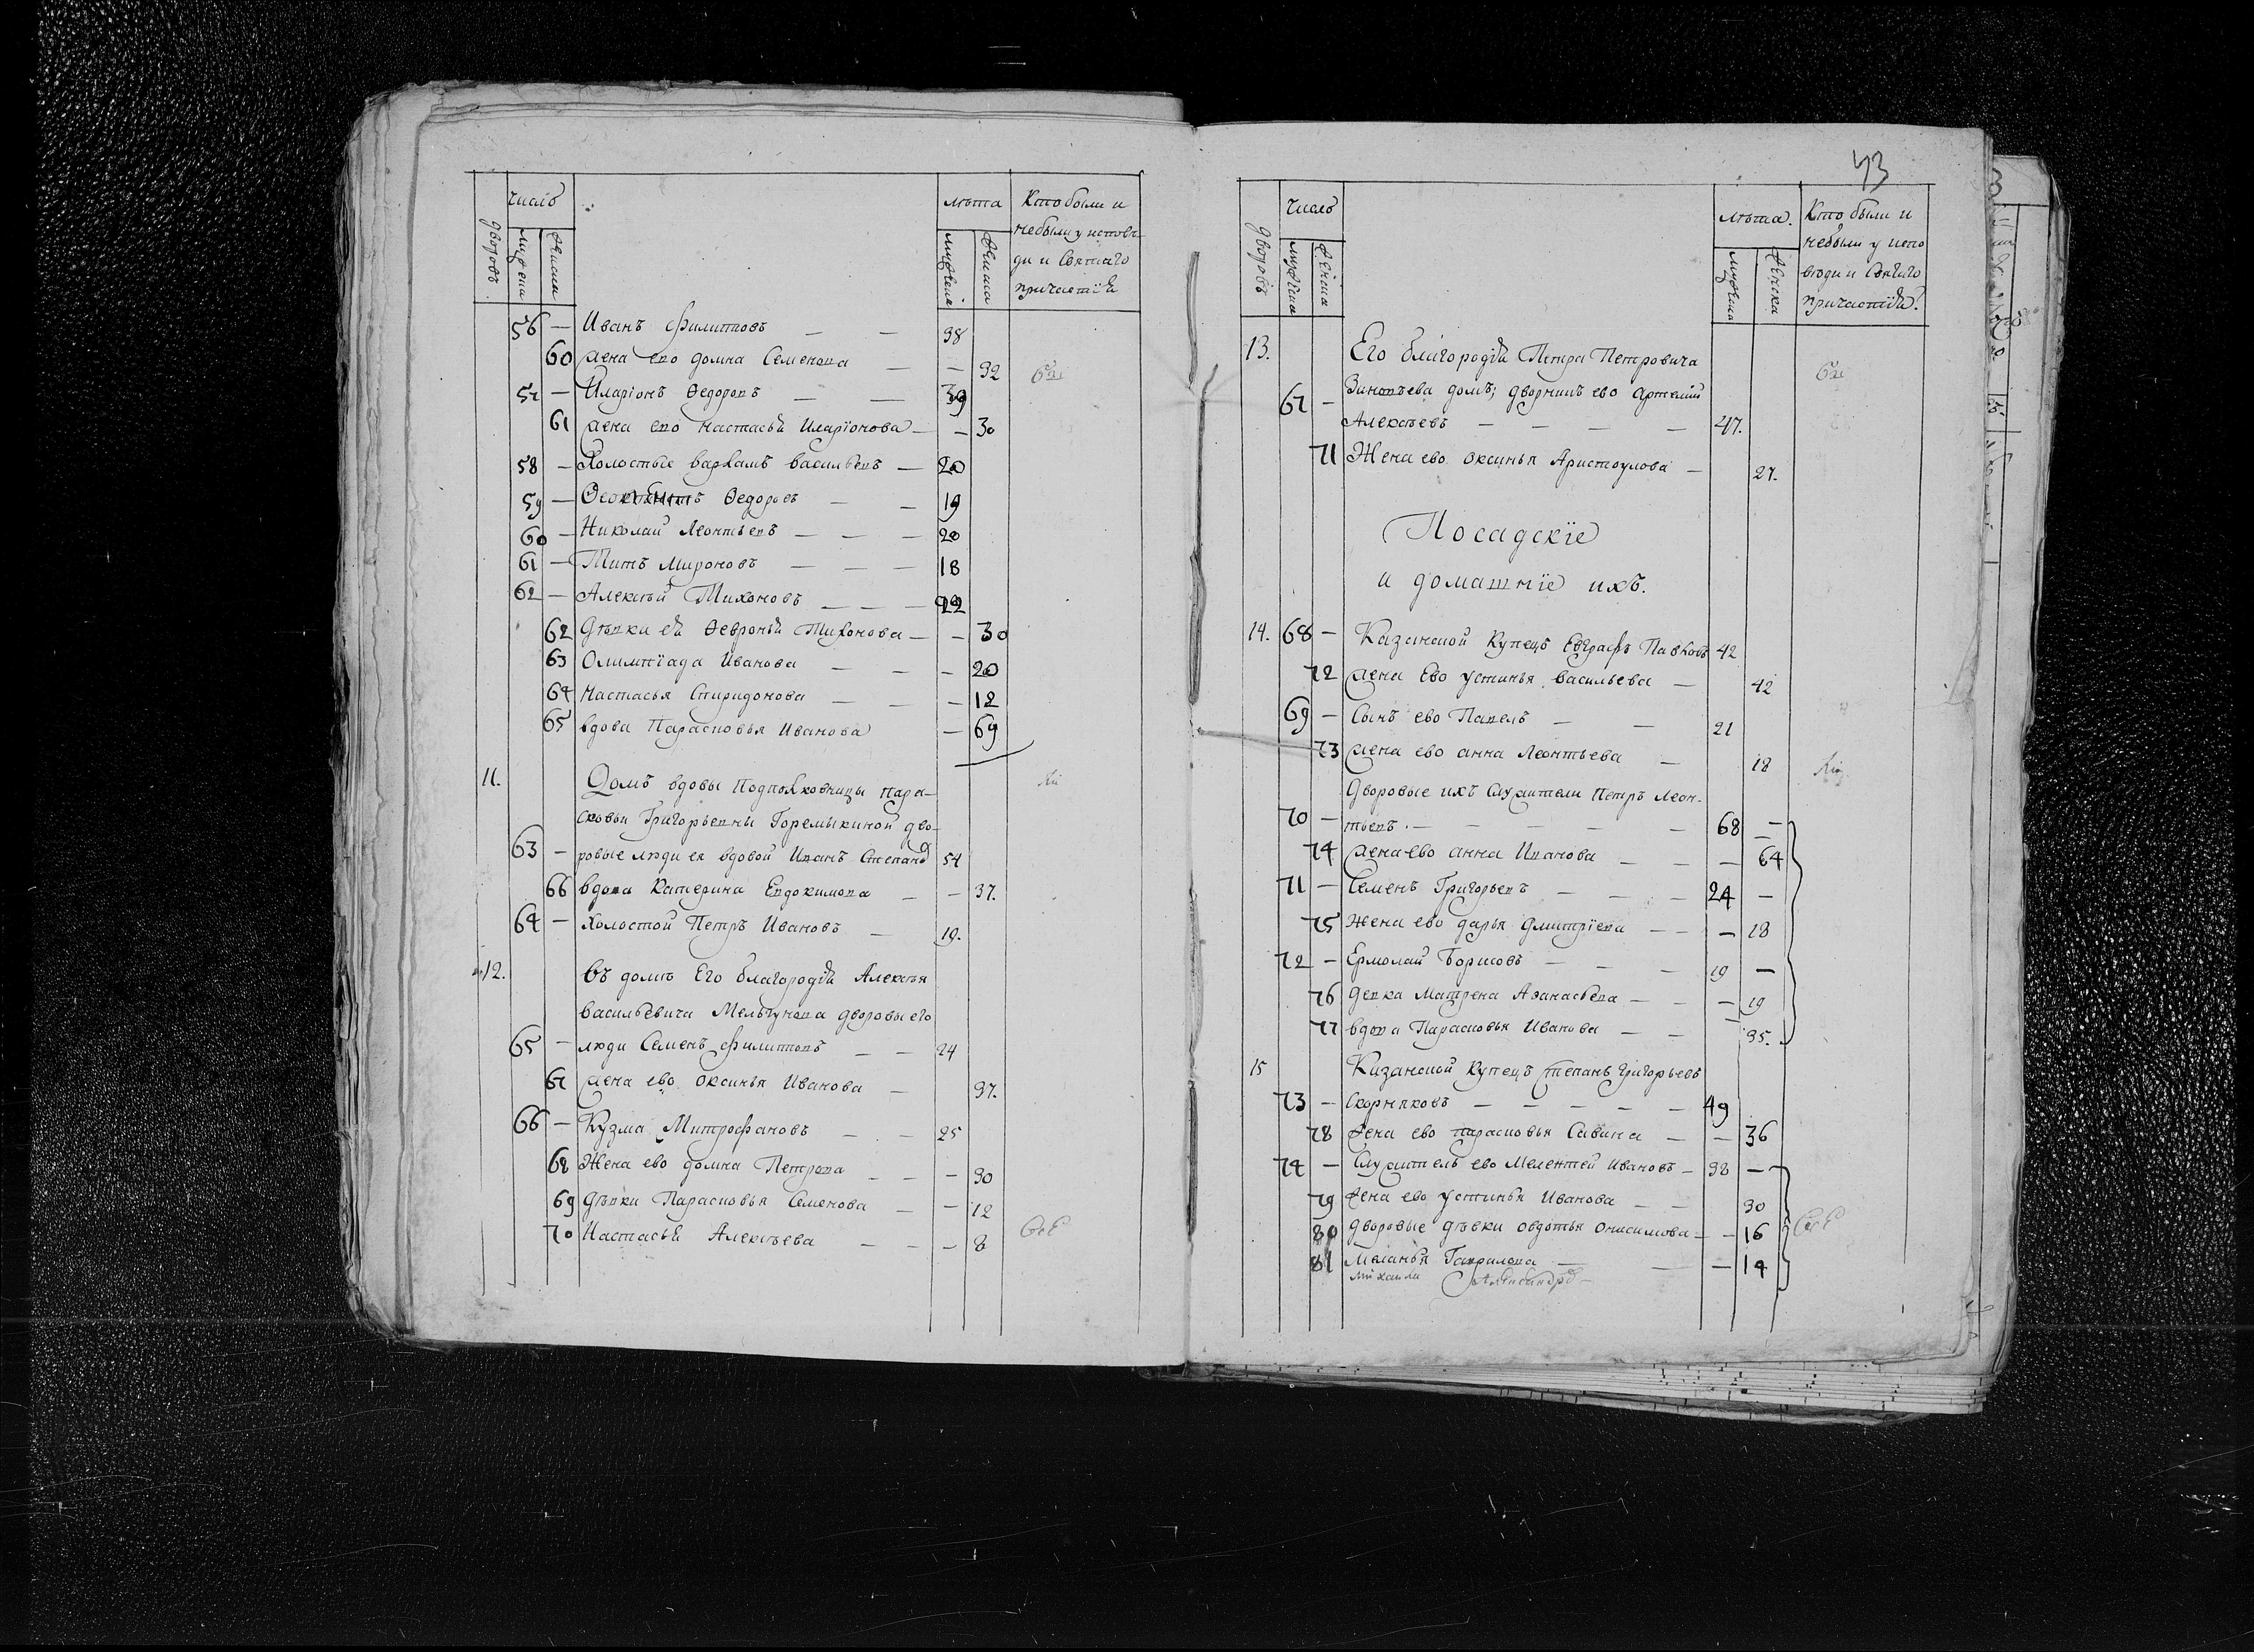 числъ
лѣта
Кто были и
небыли у исповѣ-
ди и Святаго
причастїя
дворовъ
мужеска
женска
мужеска
женска
56 — Иванъ Филиповъ — — 38
60 жена ево домна Семенова — — 32
57 — Иларїонъ Ѳедоровъ — — 39
61 жена ево настасья Иларїонова — — 30
58 — Холостые варламъ васильевъ — 20
59 — Ѳедоровъ — — 19
60 — Николай Леонтьевъ — — — 20
61 — Титъ Мироновъ — — — 18
62 — Алексѣй Тихоновъ — — — 22
62 Дѣвки ея Ѳевронья Тихонова — — 30
63 Олимпїада Иванова — — — 20
64 Настасья Спиридонова — — — 12
65 вдова Парасковья Иванова — 69
11. Домъ вдовы Подполковницы пара-
сковьи Григорьевны Горемыкиной дво-
63 — ровые люди ея вдовой Иванъ Степановъ 54
66 вдова Катерина Евдокимова — — 37.
64 — Холостой Петръ Ивановъ — 19.
12. въ домѣ Его благородїя Алексѣя
васильевича Мельгунова дворовы его
65 — люди Семенъ Филиповъ — — 24
67 жена ево оксинья Иванова — 37.
66 — Кузма Митрофановъ — — 25
68 Жена ево домна Петрова — — — 30
69 Дѣвки Парасковья Семенова — — 12
70 Настасья Алексѣева — — — 8
43
Числъ
лѣта.
Кто были и
небыли у испо
вѣди и Святаго
причастїя?
дворовъ
мужеска
женска
мужеска
женска
13. Его благородїя Петра Петровича
Зиновьева домъ; дворникъ ево Артемий
67 — Алексѣевъ — — — — 47.
71 Жена ево оксинья Аристоулова — 27.
Посадскїе
и домашнїе ихъ.
14. 68 — Казанской Купецъ Евграфъ Павловъ 42
72 жена Ево устинья васильева — 42
69 — Сынъ ево Павелъ — — 21
73 жена ево анна Леонтьева — 18
Дворовые ихъ Служители Петръ Леон-
70 — тьевъ. — — — — — 68 —
74 жена ево анна Иванова — — — 64
71 — Семенъ Григорьевъ — — — 24 —
75 Жена ево дарья Дмитрїева — — — 18
72 — Ермолай Борисовъ — — — 19 —
76 девка Матрена Аѳанасьева — — — 19
77 вдова Парасковья Иванова — — — 35.
15 Казанской Купецъ Степанъ Григорьевъ
73 — Скорняковъ — — — — — 49
78 жена ево парасковья Савина — — 36
74 — Служитель ево Мелентей Ивановъ — 38 —
79 жена ево устинья Иванова — — 30
80 дворовые дѣвки овдотья онисимова — — 16
81 Меланья Гаврилова — — — 14
Михаила Александръ —